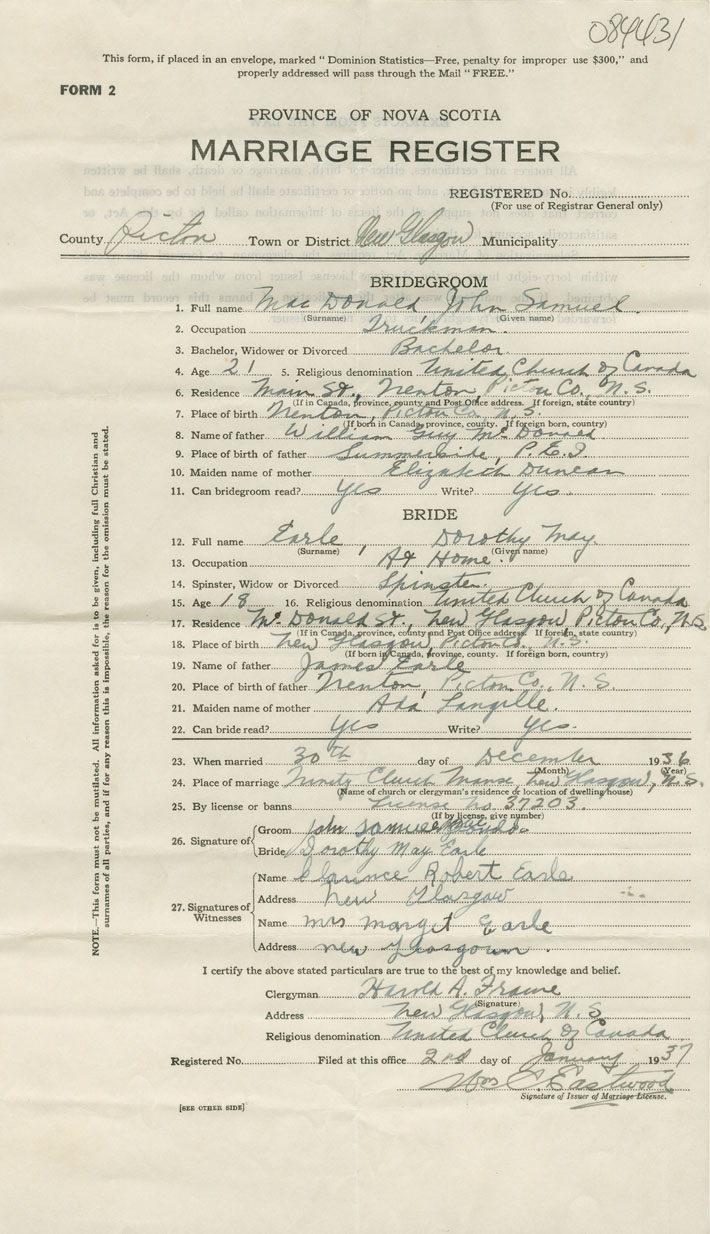 084431
This form, if placed in an envelope, marked "Dominion Statistics—Free, penalty for improper use $300," and
properly addressed will pass through the Mail "FREE."
FORM 2
PROVINCE OF NOVA SCOTIA
MARRIAGE REGISTER
REGISTERED No.
(For use of Registrar General only)
County Pictou Town or District New Glasgow Municipality
BRIDEGROOM
1. Full name MacDonald John Samuel
(Surname) (Given name)
2. Occupation Truckman.
3. Bachelor, Widower or Divorced Bachelor.
4. Age 21 5. Religious denomination United Church of Canada
6. Residence Main St., Trenton, Pictou Co., N.S.
(If in Canada, province, county and Post Office address. If foreign, state country)
7. Place of birth Trenton, Pictou Co., N.S.
(If born in Canada, province, county. If foreign born, country)
8. Name of father William Guy McDonald
9. Place of birth of father Summerside, P.E.I
10. Maiden name of mother Elizabeth Duncan
11. Can bridegroom read? Yes Write? Yes.
BRIDE
12. Full name Earle, Dorothy May
(Surname) (Given name)
13. Occupation At Home.
14. Spinster, Widow or Divorced Spinster.
15. Age 18 16. Religious denomination United Church of Canada
17. Residence McDonald St., New Glasgow, Pictou Co., N.S.
(If in Canada, province, county and Post Office address. If foreign, state country)
18. Place of birth New Glasgow, Pictou Co., N.S.
(If born in Canada, province, county. If foreign born, country)
19. Name of father James Earle
20. Place of birth of father Trenton, Pictou Co., N.S.
21. Maiden name of mother Ada Langille.
22. Can bride read? Yes Write? Yes.
23. When married 30th day of December 1936
(Month) (Year)
24. Place of marriage Trinity Church Manse, New Glasgow, N.S.
(Name of church or clergyman's residence or location of dwelling house)
25. By license or banns License No. 37203.
(If by license, give number)
26. Signature of
Groom John Samuel
Bride Dorothy May Earle
27. Signatures of Witnesses
Name Clarence Robert Earle
Address New Glasgow
Name Mrs Marget Earle
Address new Glasgow.
I certify the above stated particulars are true to the best of my knowledge and belief.
Clergyman Harold A. Frame
(Signature)
Address New Glasgow, N.S.
Religious denomination United Church of Canada
Registered No. Filed at this office 2nd day of January 1937
Wm C. Eastwood
Signature of Issuer of Marriage License.
[SEE OTHER SIDE]
NOTE.—This form must not be mutilated. All information asked for is to be given, including full Christian and
surnames of all parties, and if for any reason this is impossible, the reason for the omission must be stated.